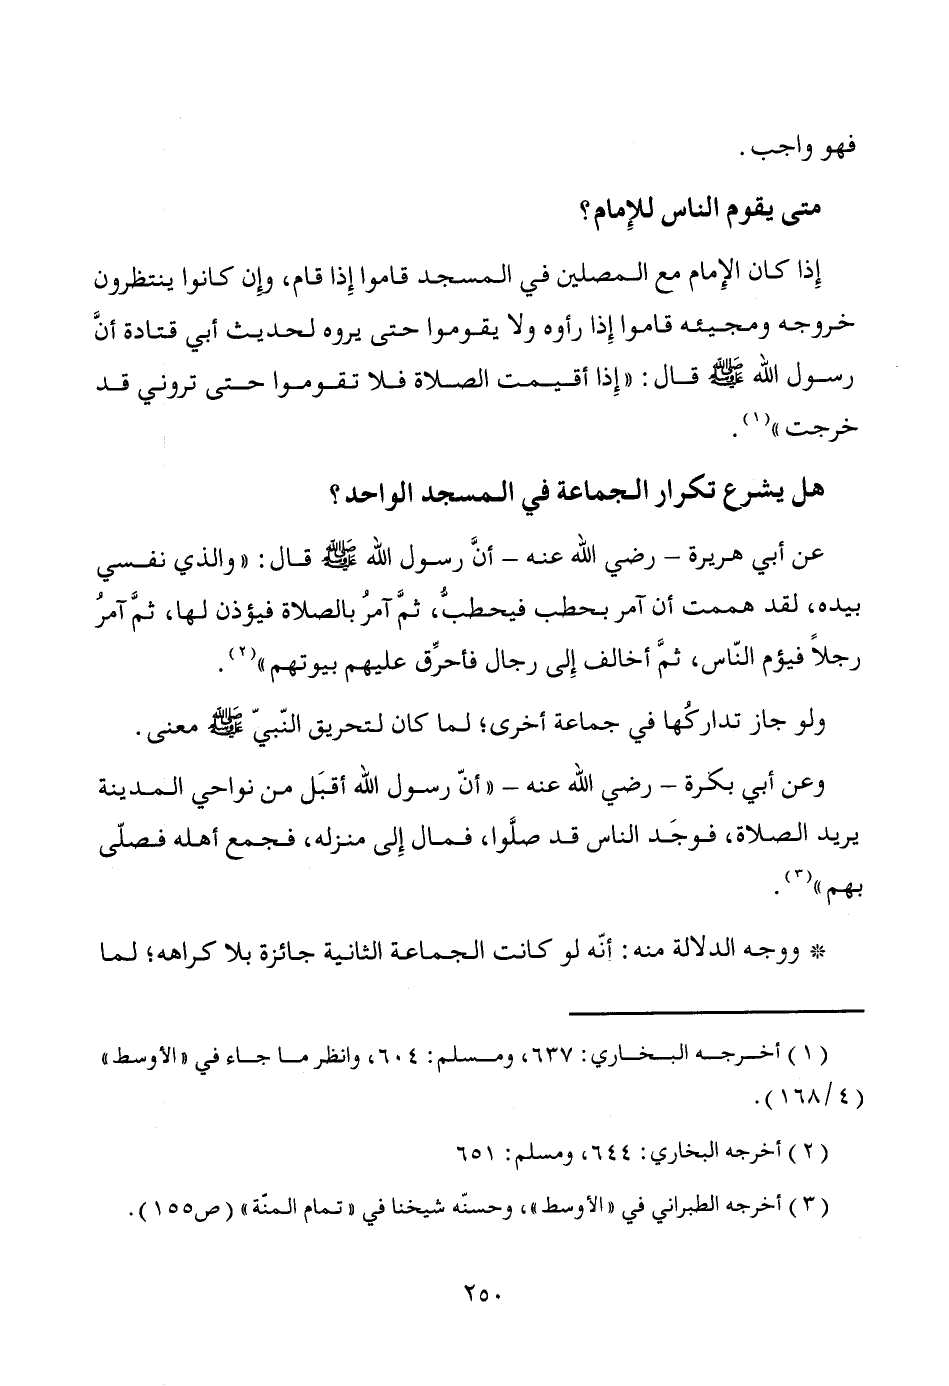 فهو واجب .
متى يقوم الناس للإمام؟
إذا كان الإمام مع المصلين في المسجد قاموا إذا قام، وإن كانوا ينتظرون
خروجه ومجيئه قاموا إذا رأوه ولا يقوموا حتى يروه لحديث أبي قتادة أنَّ
رسول الله ﷺ قال : «إذا أقيمت الصلاة فلا تقوموا حتى تروني قد
خرجت»(١).
هل يشرع تكرار الجماعة في المسجد الواحد؟
عن أبي هريرة - رضي الله عنه - أنَّ رسول الله ﷺ قال : «والذي نفسي
بيده، لقد هممت أن آمر بحطب فيحطبُ، ثمَّ آمرُ بالصلاة فيؤذن لها، ثمَّ آمرُ
رجلاً فيؤم النّاس، ثمَّ أخالف إلى رجال فأحرِّق عليهم بيوتهم»(٢).
ولو جاز تداركُها في جماعة أخرى؛ لما كان لتحريق النّبيّ ﷺ معنى .
وعن أبي بكرة - رضي الله عنه - «أنّ رسول الله أقبَل من نواحي المدينة
يريد الصلاة، فوجَد الناس قد صلَّوا، فمال إلى منزله، فجمع أهله فصلّى
بهم»(٣).
* ووجه الدلالة منه : أنّه لو كانت الجماعة الثانية جائزة بلا كراهه؛ لما
(١) أخرجه البخاري: ٦٣٧، ومسلم: ٦٠٤، وانظر ما جاء في «الأوسط»
(٤/ ١٦٨).
(٢) أخرجه البخاري: ٦٤٤، ومسلم: ٦٥١
(٣) أخرجه الطبراني في «الأوسط»، وحسنّه شيخنا في «تمام المنّة» (ص١٥٥).
٢٥٠